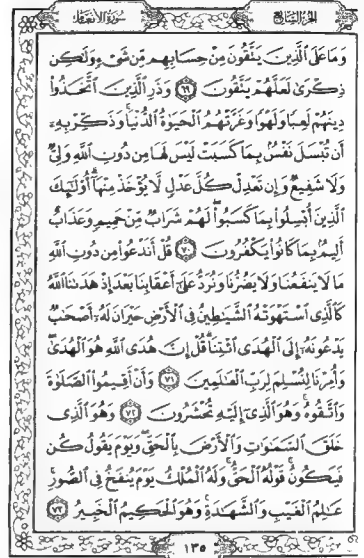 الجزء السابع
سورة الأنعام
وَمَا عَلَى ٱلَّذِينَ يَتَّقُونَ مِنْ حِسَابِهِم مِّن شَىْءٍ وَلَٰكِن
ذِكْرَىٰ لَعَلَّهُمْ يَتَّقُونَ ٦٩ وَذَرِ ٱلَّذِينَ ٱتَّخَذُوا۟
دِينَهُمْ لَعِبًا وَلَهْوًا وَغَرَّتْهُمُ ٱلْحَيَوٰةُ ٱلدُّنْيَا ۚ وَذَكِّرْ بِهِۦٓ
أَن تُبْسَلَ نَفْسٌۢ بِمَا كَسَبَتْ لَيْسَ لَهَا مِن دُونِ ٱللَّهِ وَلِىٌّ
وَلَا شَفِيعٌ وَإِن تَعْدِلْ كُلَّ عَدْلٍ لَّا يُؤْخَذْ مِنْهَآ ۗ أُو۟لَٰٓئِكَ
ٱلَّذِينَ أُبْسِلُوا۟ بِمَا كَسَبُوا۟ ۖ لَهُمْ شَرَابٌ مِّنْ حَمِيمٍ وَعَذَابٌ
أَلِيمٌۢ بِمَا كَانُوا۟ يَكْفُرُونَ ٧٠ قُلْ أَنَدْعُوا۟ مِن دُونِ ٱللَّهِ
مَا لَا يَنفَعُنَا وَلَا يَضُرُّنَا وَنُرَدُّ عَلَىٰٓ أَعْقَابِنَا بَعْدَ إِذْ هَدَىٰنَا ٱللَّهُ
كَٱلَّذِى ٱسْتَهْوَتْهُ ٱلشَّيَٰطِينُ فِى ٱلْأَرْضِ حَيْرَانَ لَهُۥٓ أَصْحَٰبٌ
يَدْعُونَهُۥٓ إِلَى ٱلْهُدَى ٱئْتِنَا ۗ قُلْ إِنَّ هُدَى ٱللَّهِ هُوَ ٱلْهُدَىٰ ۖ
وَأُمِرْنَا لِنُسْلِمَ لِرَبِّ ٱلْعَٰلَمِينَ ٧١ وَأَنْ أَقِيمُوا۟ ٱلصَّلَوٰةَ
وَٱتَّقُوهُ ۚ وَهُوَ ٱلَّذِىٓ إِلَيْهِ تُحْشَرُونَ ٧٢ وَهُوَ ٱلَّذِى
خَلَقَ ٱلسَّمَٰوَٰتِ وَٱلْأَرْضَ بِٱلْحَقِّ ۖ وَيَوْمَ يَقُولُ كُن
فَيَكُونُ ۚ قَوْلُهُ ٱلْحَقُّ ۚ وَلَهُ ٱلْمُلْكُ يَوْمَ يُنفَخُ فِى ٱلصُّورِ ۚ
عَٰلِمُ ٱلْغَيْبِ وَٱلشَّهَٰدَةِ ۚ وَهُوَ ٱلْحَكِيمُ ٱلْخَبِيرُ ٧٣
١٣٥